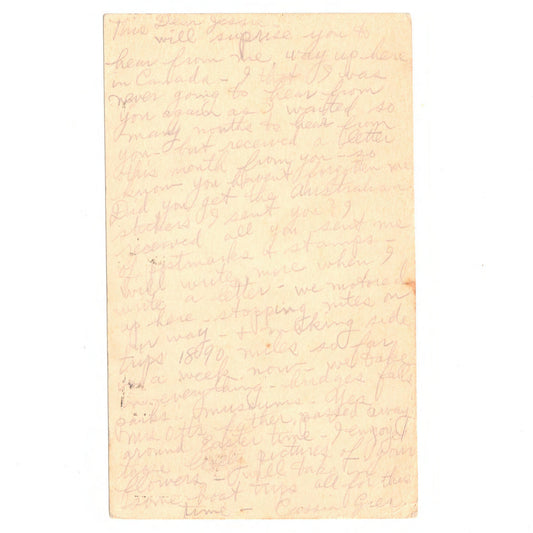 Dear Jessie -
This will suprise you to
hear from me, way up here
in Canada - I that I was
never going to hear from
you again as I waited so
many months to hear from
you - but received a letter
this month from you - so
know you havent forgotten me
Did you get the Australian
stickers I sent you? I
received all you sent me
of postmarks & stamps -
Will write more when I
write a letter - we motored
up here - stopping nites on
our way - & making side
trips 1890 miles so far
in a week now - we take
in everything - bridges falls
parks & museums - Yes
Mrs father, passed away
around Easter time - I enjoyed
those pictures of your
flowers - will take
some boat trips all for this
time -